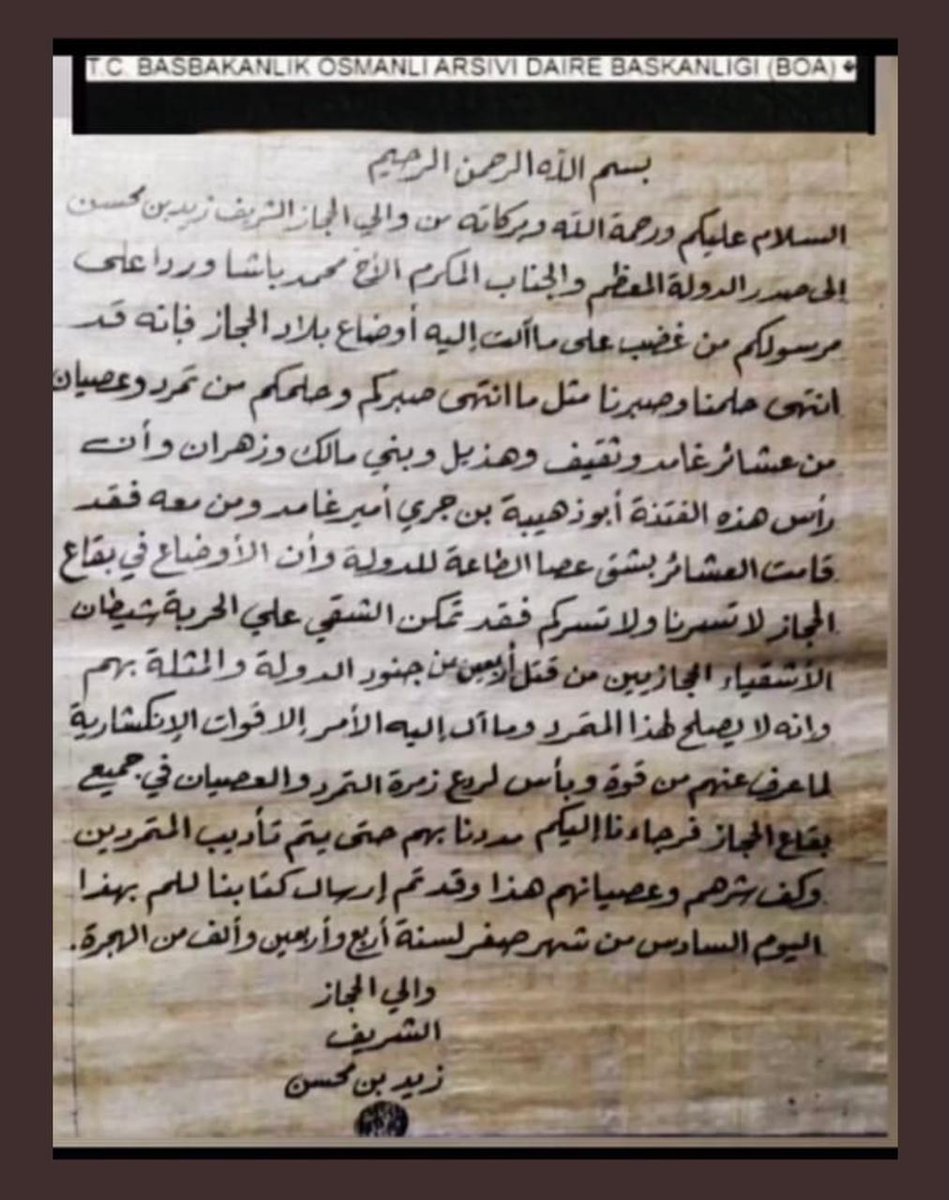 T.C. BASBAKANLIK OSMANLI ARSIVI DAIRE BASKANLIGI (BOA)
بسم الله الرحمن الرحيم
السلام عليكم ورحمة الله وبركاته من والي الحجاز الشريف زيد بن محسن
إلى صدر الدولة المعظم والجناب المكرم الأخ محمد باشا وردا على
مرسولكم من غضب على ما آلت إليه أوضاع بلاد الحجاز فإنه قد
انتهى حلمنا وصبرنا مثل ما انتهى صبركم وحلمكم من تمرد وعصيان
من عشائر غامد وثقيف وهذيل وبني مالك وزهران وأن
رأس هذه الفتنة أبو ذهيبة بن جري أمير غامد ومن معه فقد
قامت العشائر بشق عصا الطاعة للدولة وأن الأوضاع في بقاع
الحجاز لا تسرنا ولا تسركم فقد تمكن الشقي علي الحربة شيطان
الأشقياء الحجازيين من قتل أربعين من جنود الدولة والمثلة بهم
وانه لا يصلح لهذا التمرد وما آل إليه الأمر إلا قوات الإنكشارية
لما عرف عنهم من قوة وبأس لردع زمرة التمرد والعصيان في جميع
بقاع الحجاز فرجاءنا إليكم مددنا بهم حتى يتم تأديب المتمردين
وكف شرهم وعصيانهم هذا وقد تم إرسال كتابنا لكم بهذا
اليوم السادس من شهر صفر لسنة أربع وأربعين وألف من الهجرة.
والي الحجاز
الشريف
زيد بن محسن